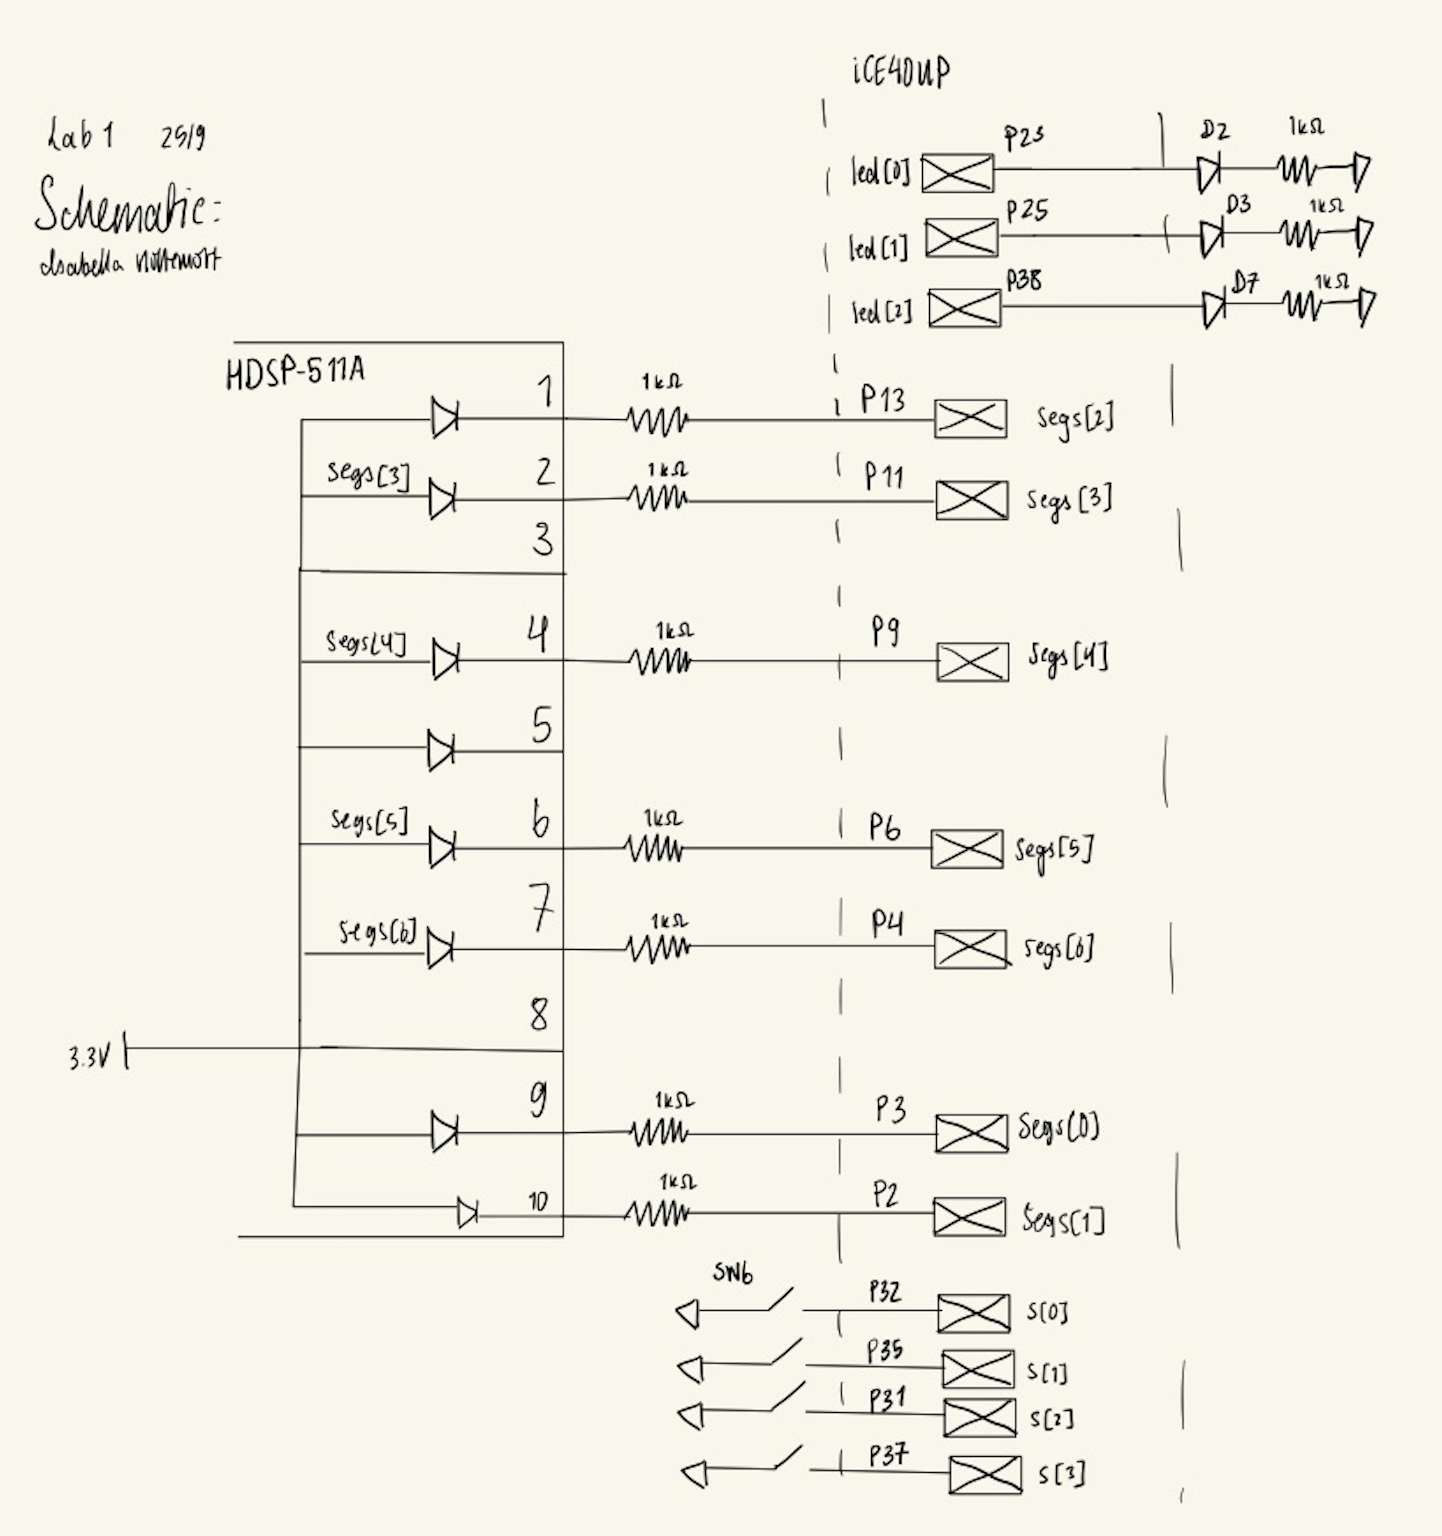 iCE40UP
Lab 1 25/9
Schematic:
Isabella
led[0] P23 D2 1kΩ
led[1] P25 D3 1kΩ
led[2] P38 D7 1kΩ
HDSP-511A
1 1kΩ P13 segs[2]
segs[3] 2 1kΩ P11 segs[3]
3
segs[4] 4 1kΩ P9 segs[4]
5
segs[5] 6 1kΩ P6 segs[5]
segs[6] 7 1kΩ P4 segs[6]
8
3.3V
9 1kΩ P3 segs[0]
10 1kΩ P2 segs[1]
SW6
P32 s[0]
P35 s[1]
P31 s[2]
P37 s[3]